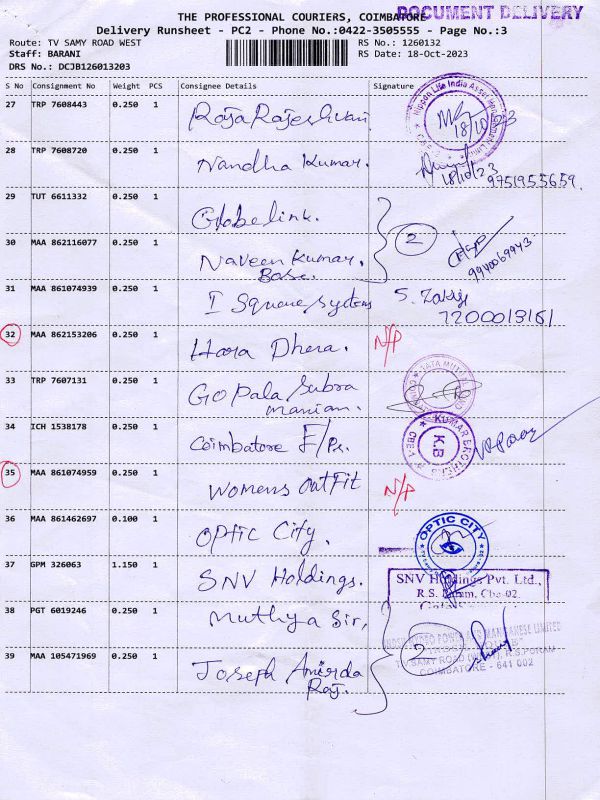 THE PROFESSIONAL COURIERS, COIMBATORE
DOCUMENT DELIVERY
Delivery Runsheet - PC2 - Phone No.:0422-3505555 - Page No.:3
Route: TV SAMY ROAD WEST
RS No.: 1260132
Staff: BARANI
RS Date: 18-Oct-2023
DRS No.: DCJB126013203
S No Consignment No Weight PCS Consignee Details Signature
27 TRP 7608443 0.250 1 Raja Rajeshwari
Nippon Life India Asset Limited
18/10/23
28 TRP 7608720 0.250 1 Nandha Kumar.
18/10/23 9751955659.
29 TUT 6611332 0.250 1 Globelink.
2
30 MAA 862116077 0.250 1 Naveen Kumar.
Bose.
9940069943
31 MAA 861074939 0.250 1 I Square Systems S.
7200013161
32 MAA 862153206 0.250 1 Hara Dhera. N/P
33 TRP 7607131 0.250 1 Gopala Subra
manian.
TATA
34 ICH 1538178 0.250 1 Coimbatore
KUMAR BROTHERS
K.B
CBE-1
35 MAA 861074959 0.250 1 Womens OutFit N/P
36 MAA 861462697 0.100 1 OPtic City.
OPTIC CITY
37 GPM 326063 1.150 1 SNV Holdings.
SNV Holdings Pvt. Ltd.,
R.S. Puram, Cbe-02.
38 PGT 6019246 0.250 1 Muthya Sir,
LIMITED
2
TV SAMY ROAD R.S.PURAM
COIMBATORE - 641 002
39 MAA 105471969 0.250 1 Joseph Amirda
Raj.